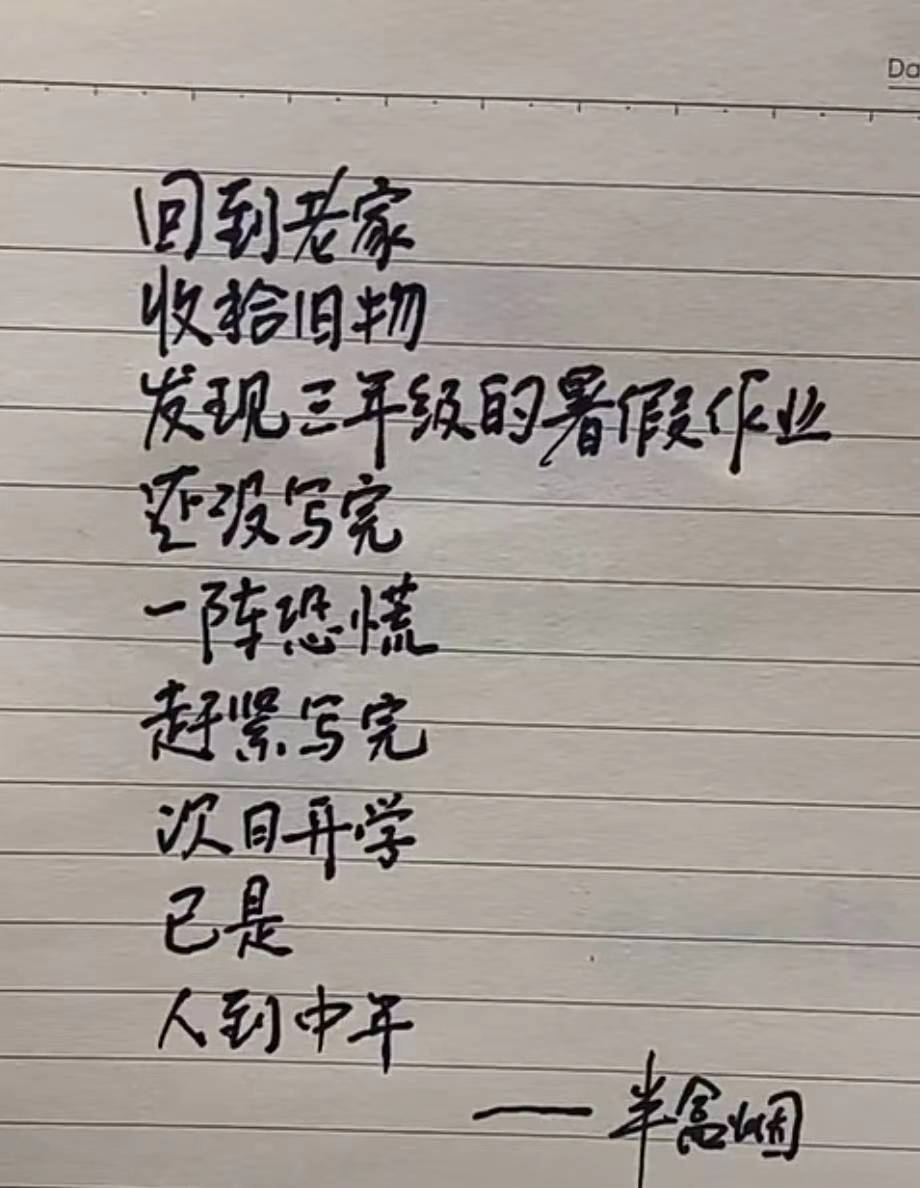 Da
回到老家
收拾旧物
发现三年级的暑假作业
还没写完
一阵恐慌
赶紧写完
次日开学
已是
人到中年
——半盒烟